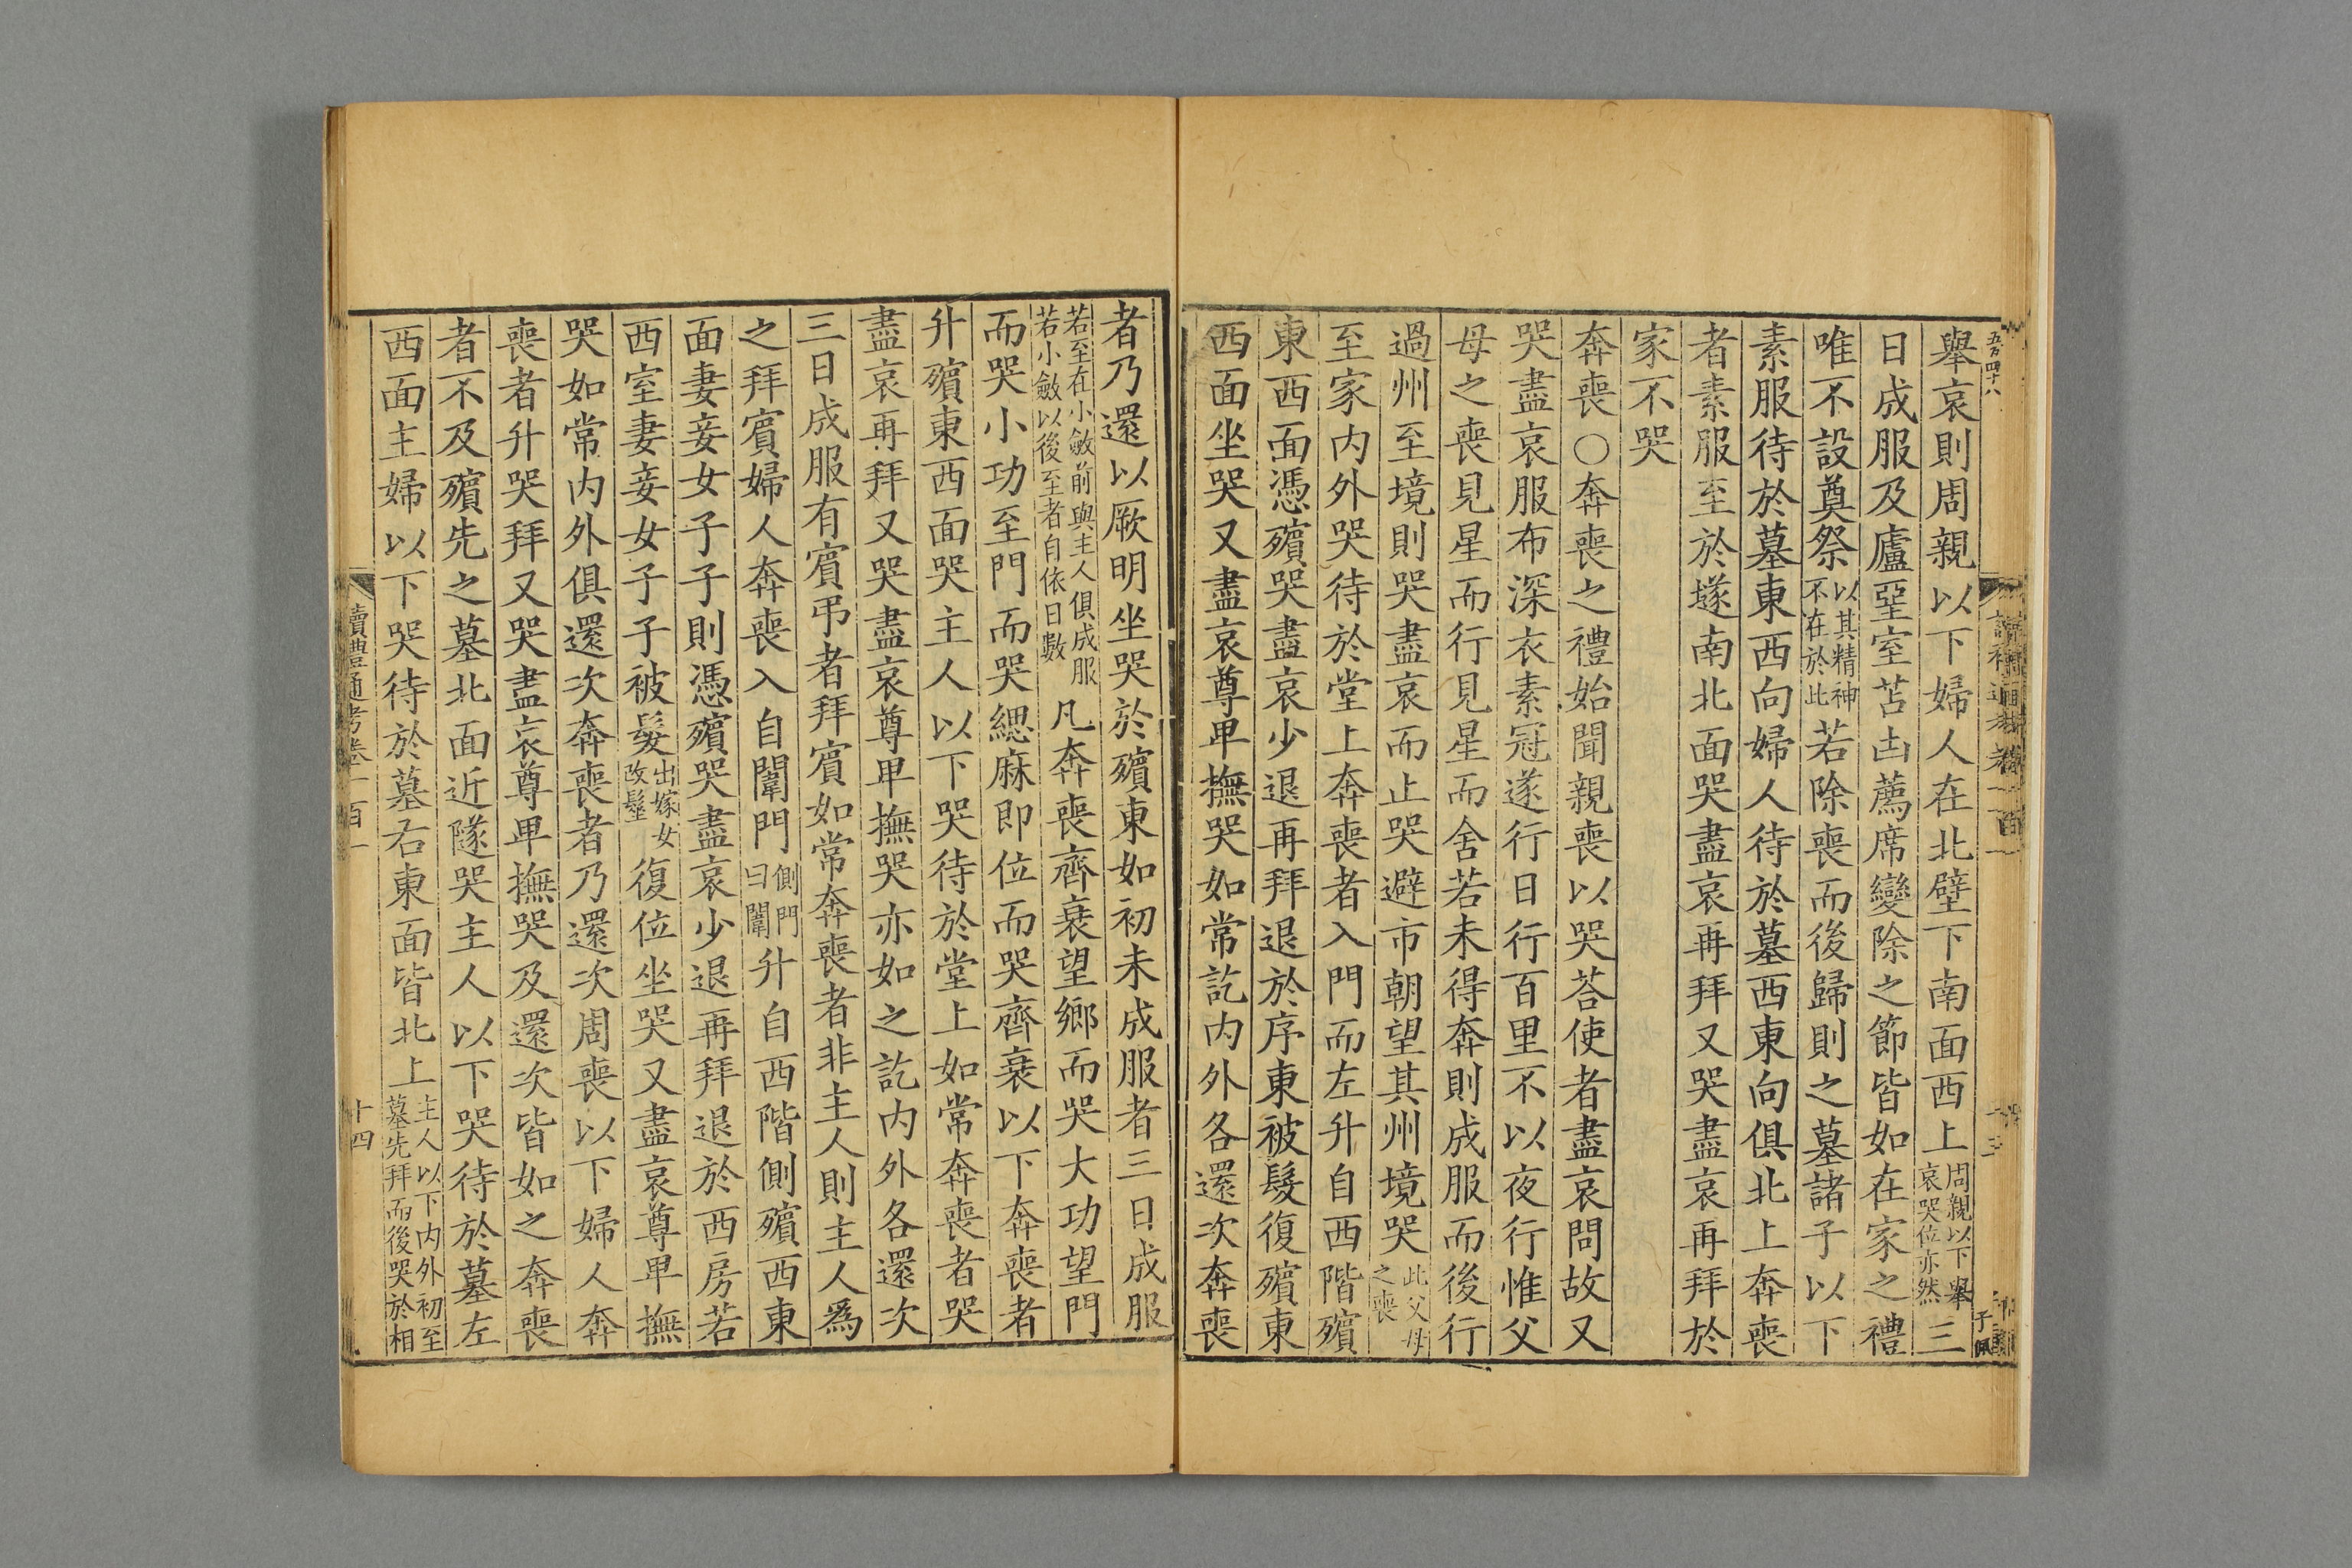 五百四十八
舉哀則周親以下婦人在北壁下南面西上周親以下舉哀哭位亦然三
日成服及廬堊室苫凷薦席變除之節皆如在家之禮
唯不設奠祭以其精神不在於此若除喪而後歸則之墓諸子以下
素服待於墓東西向婦人待於墓西東向俱北上奔喪
者素服至於㙇南北面哭盡哀再拜又哭盡哀再拜於
家不哭
奔喪○奔喪之禮始聞親喪以哭荅使者盡哀問故又
哭盡哀服布深衣素冠遂行日行百里不以夜行惟父
母之喪見星而行見星而舍若未得奔則成服而後行
過州至境則哭盡哀而止哭避市朝望其州境哭此父母之喪
至家内外哭待於堂上奔喪者入門而左升自西階殯
東西面憑殯哭盡哀少退再拜退於序東被髮復殯東
西面坐哭又盡哀尊卑撫哭如常訖内外各還次奔喪
子佩
者乃還以厥明坐哭於殯東如初未成服者三日成服
若至在小斂前與主人俱成服若小斂以後至者自依日數凡奔喪齊衰望鄉而哭大功望門
而哭小功至門而哭緦麻即位而哭齊衰以下奔喪者
升殯東西面哭主人以下哭待於堂上如常奔喪者哭
盡哀再拜又哭盡哀尊卑撫哭亦如之訖内外各還次
三日成服有賓弔者拜賓如常奔喪者非主人則主人爲
之拜賓婦人奔喪入自闈門側門曰闈升自西階側殯西東
面妻妾女子子則憑殯哭盡哀少退再拜退於西房若
西室妻妾女子子被髮出嫁女改髽復位坐哭又盡哀尊卑撫
哭如常内外俱還次奔喪者乃還次周喪以下婦人奔
喪者升哭拜又哭盡哀尊卑撫哭及還次皆如之奔喪
者不及殯先之墓北面近隧哭主人以下哭待於墓左
西面主婦以下哭待於墓右東面皆北上主人以下内外初至墓先拜而後哭於相
讀禮通考卷一百一
十四